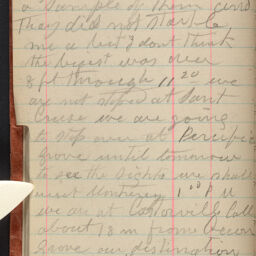 a sample of them and
They did not startle
me a bit I dont think
the bigest was over
8 ft through 11 20 we
are not stoped at Sant
Cruise we are going
to stop over at Percific
Grove until tomorrow
to see the sights we shall
visit Monterey 1 00 P M
we are at Castorville Call
about 18 m from
Grove our destination